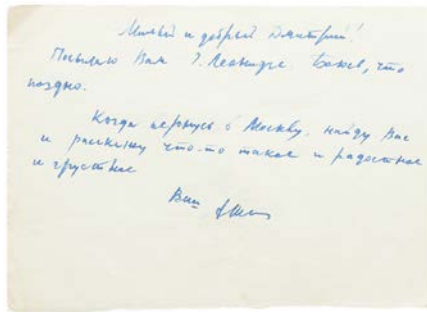 Милый и добрый Дмитрий!
Посылаю Вам Г. Леонидзе. Боюсь, что
поздно.
Когда вернусь в Москву, найду Вас
и расскажу что-то такое и радостное
и грустное
Ваш